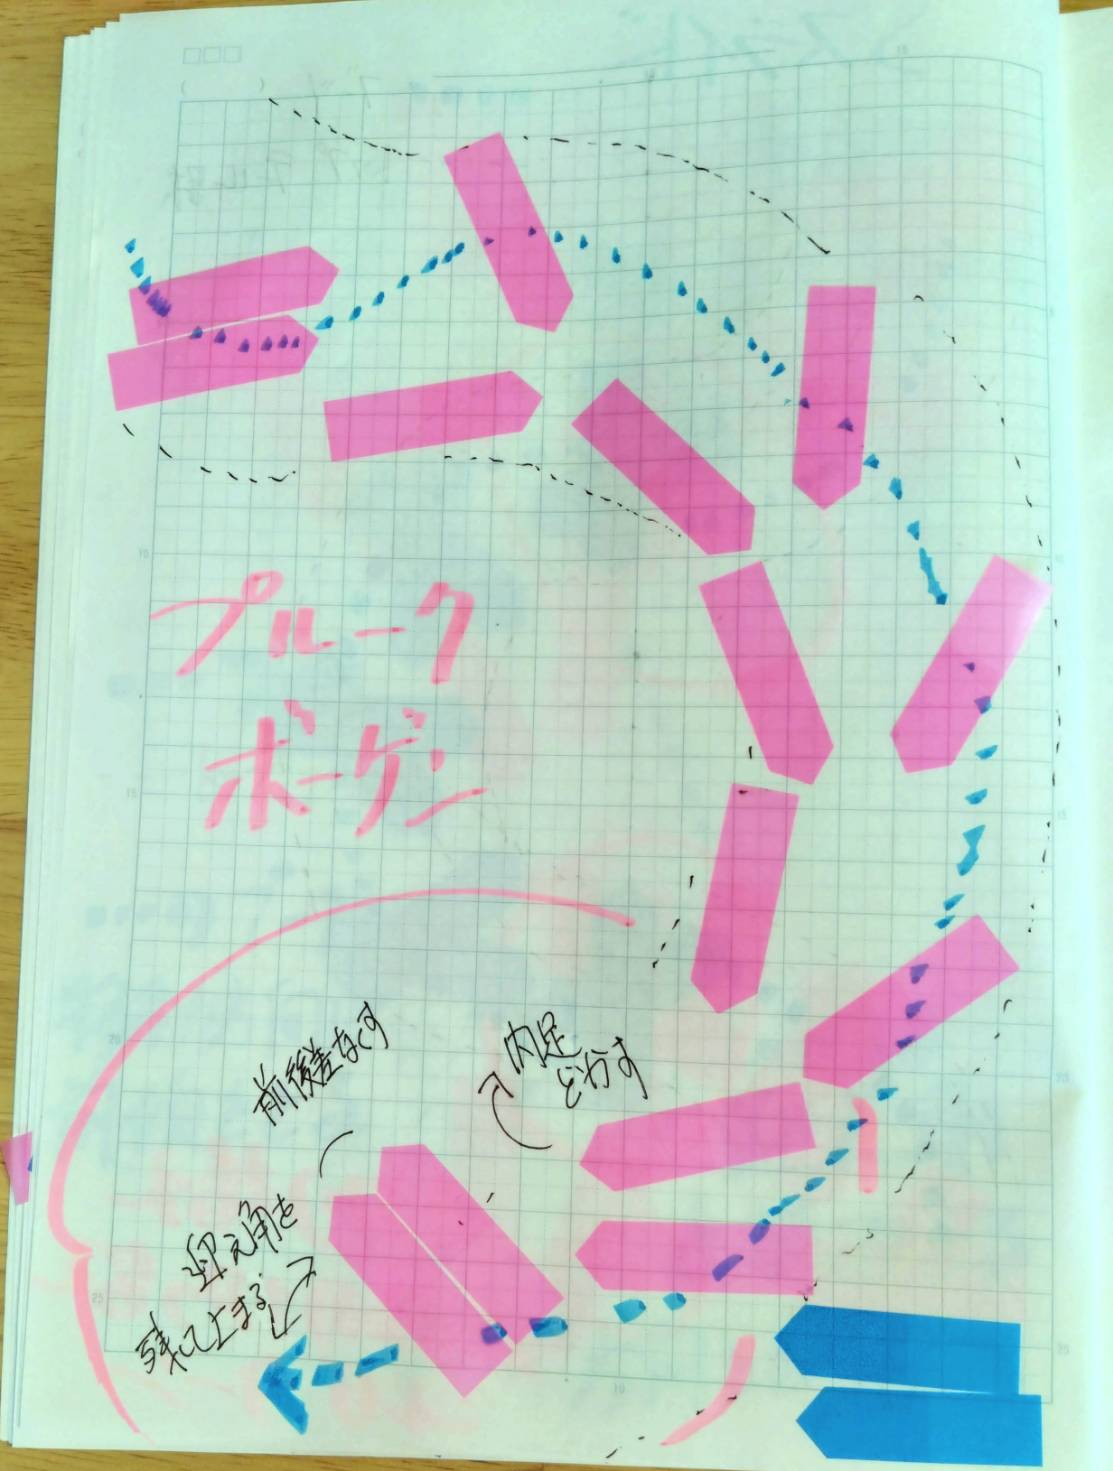 プルーク
ボーゲン
前後差なくす
内足
どかす
迎え角を
残して止まる